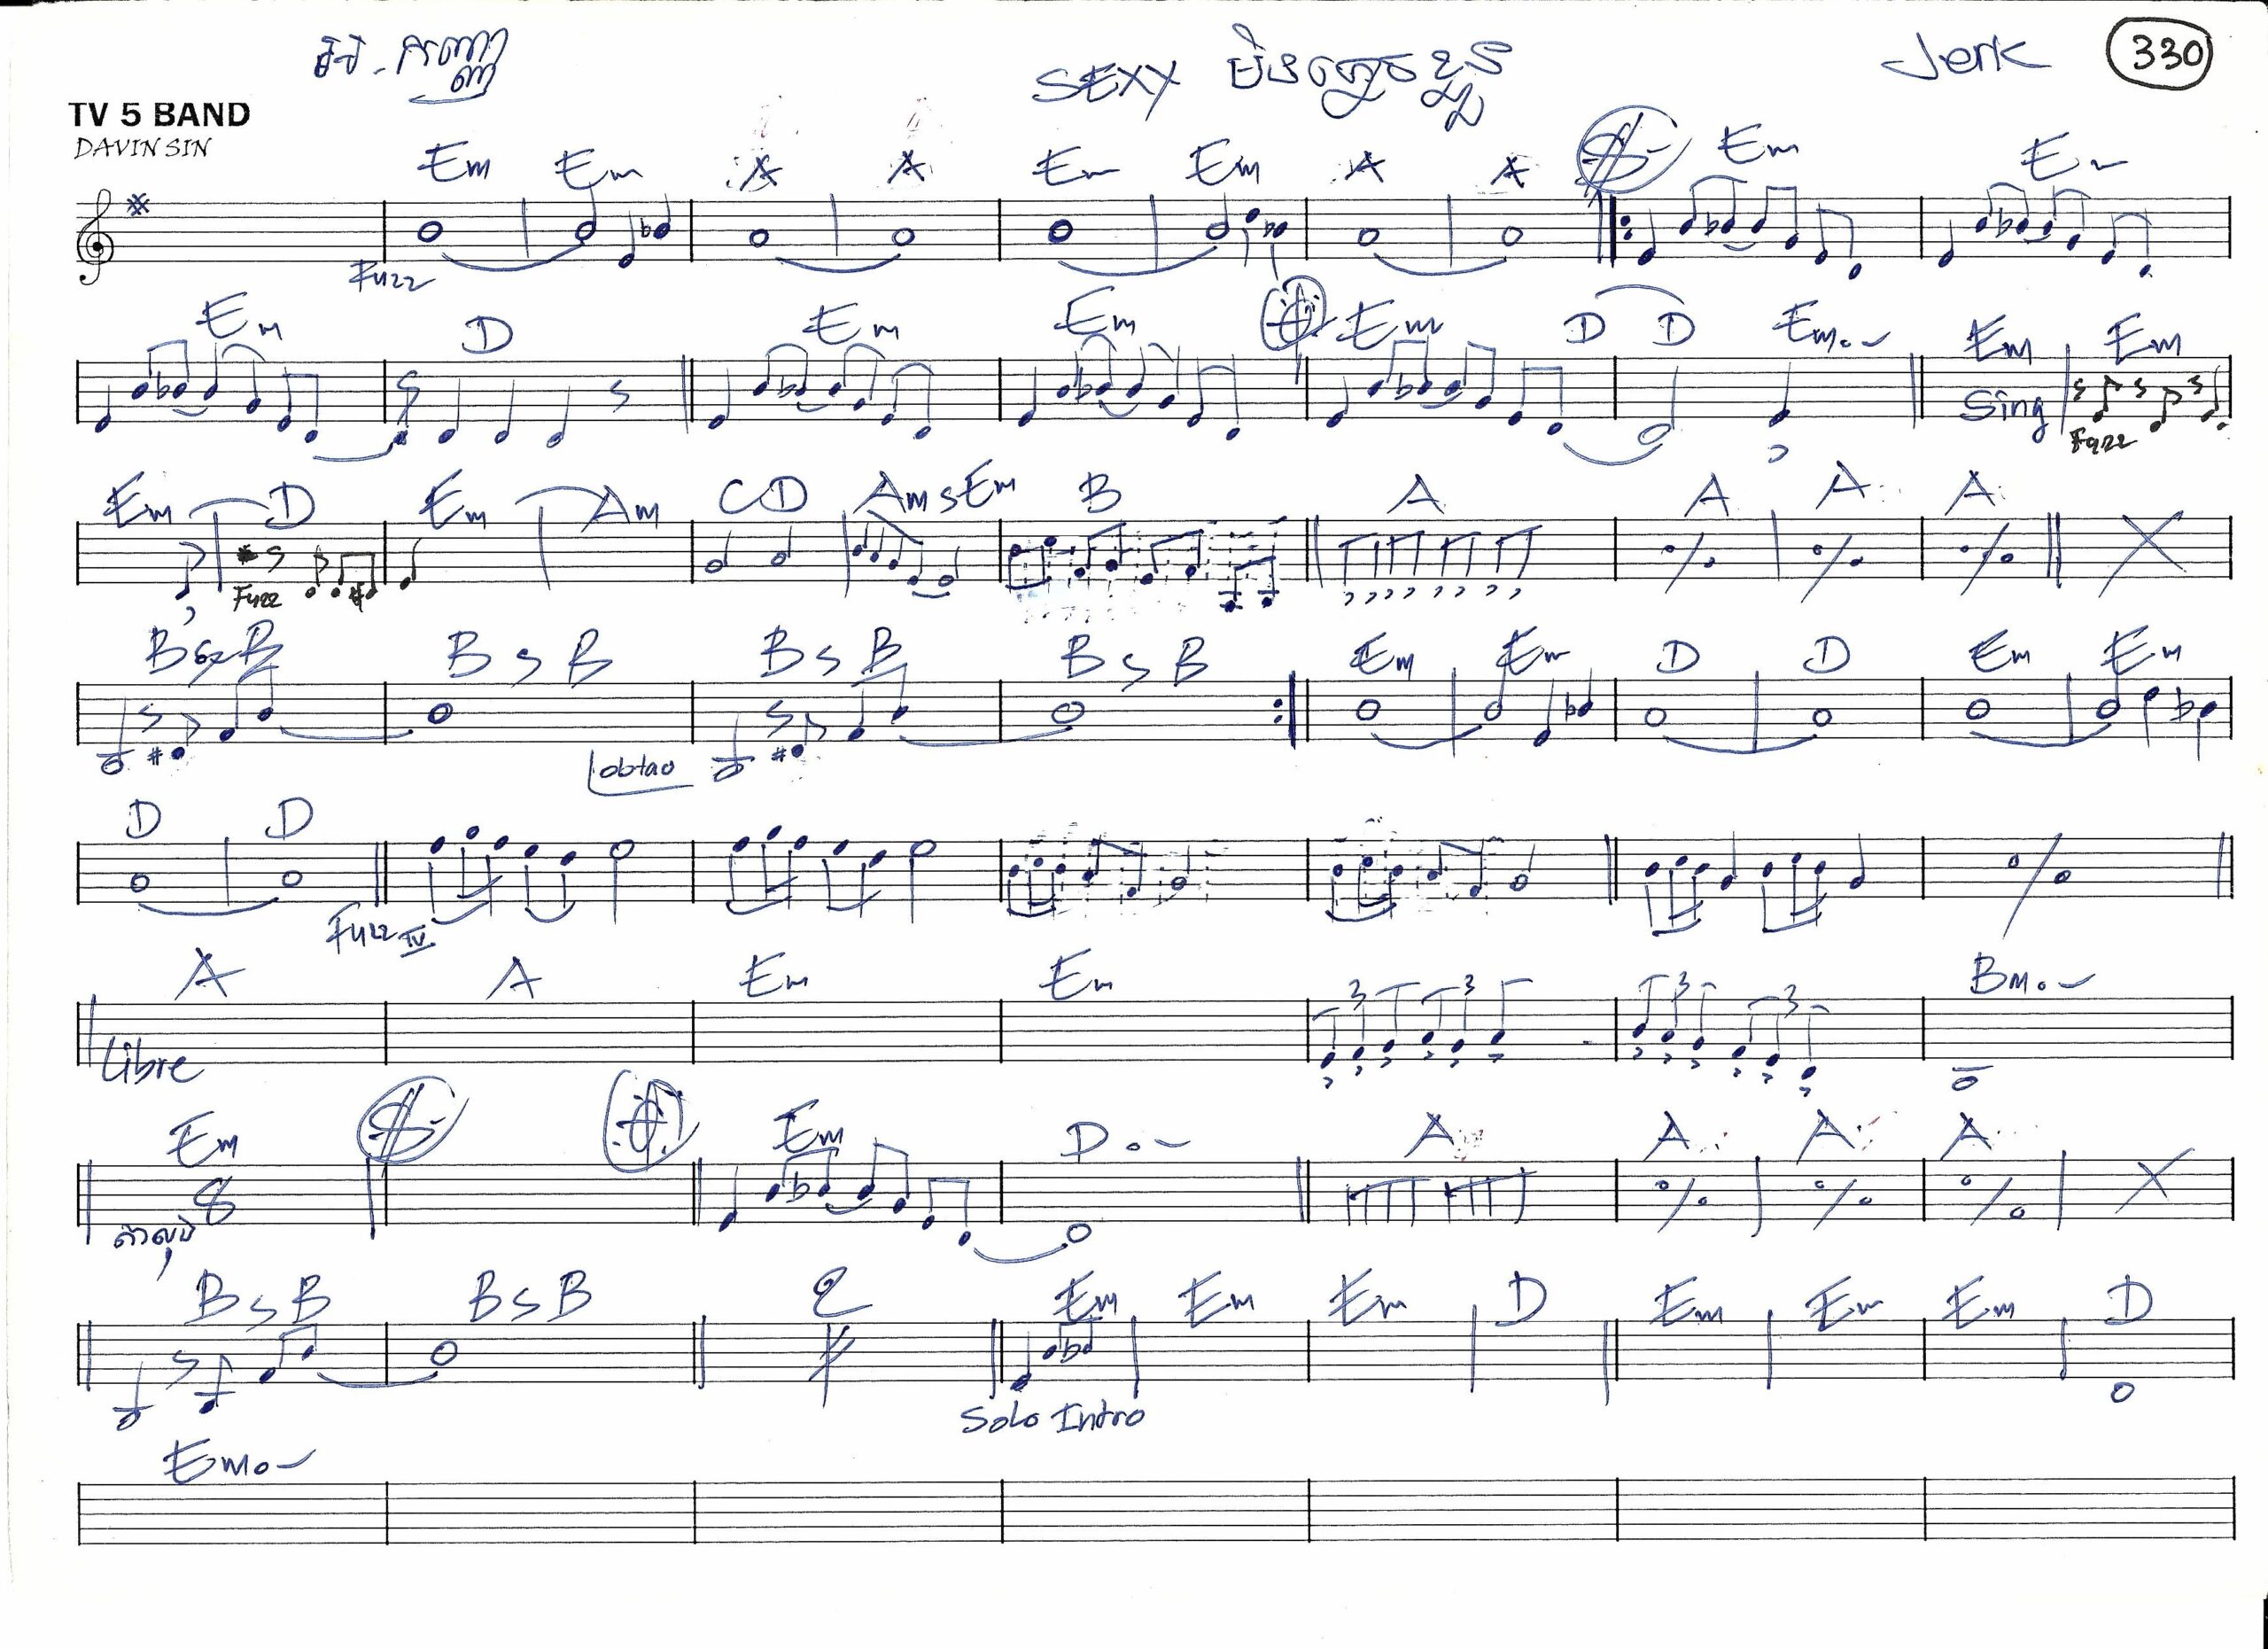 SEXY Jerk 330
TV 5 BAND
DAVIN SIN
Em Em A A Em Em A A Em Em
Fuzz
Em D Em Em Em D D Em
Em Em
Sing
Fuzz
Em D Em Am C D Am Em B A A A A
Fuzz
B B B B B B B B Em Em D D Em Em
D D
Fuzz IV
A A Em Em 3 3 3 3 Bm
Libre
Em Em D A A A A
8
B B B B 2 Em Em Em D Em Em Em D
Solo Intro
Em